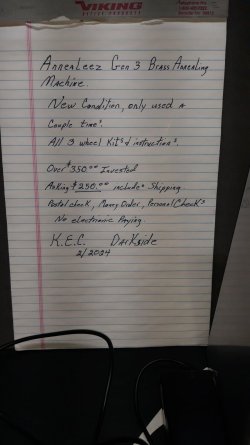 VIKING
AnneaLeez Gen 3 Brass Annealing
Machine.
New Condition, only used a
Couple times.
All 3 wheel Kits & instructions.
Over $350.00 Invested
Asking $250.00 includes Shipping.
Postal check, Money Order, Personal Checks
No electronic Paying.
K.E.C. Darkside
2/2024